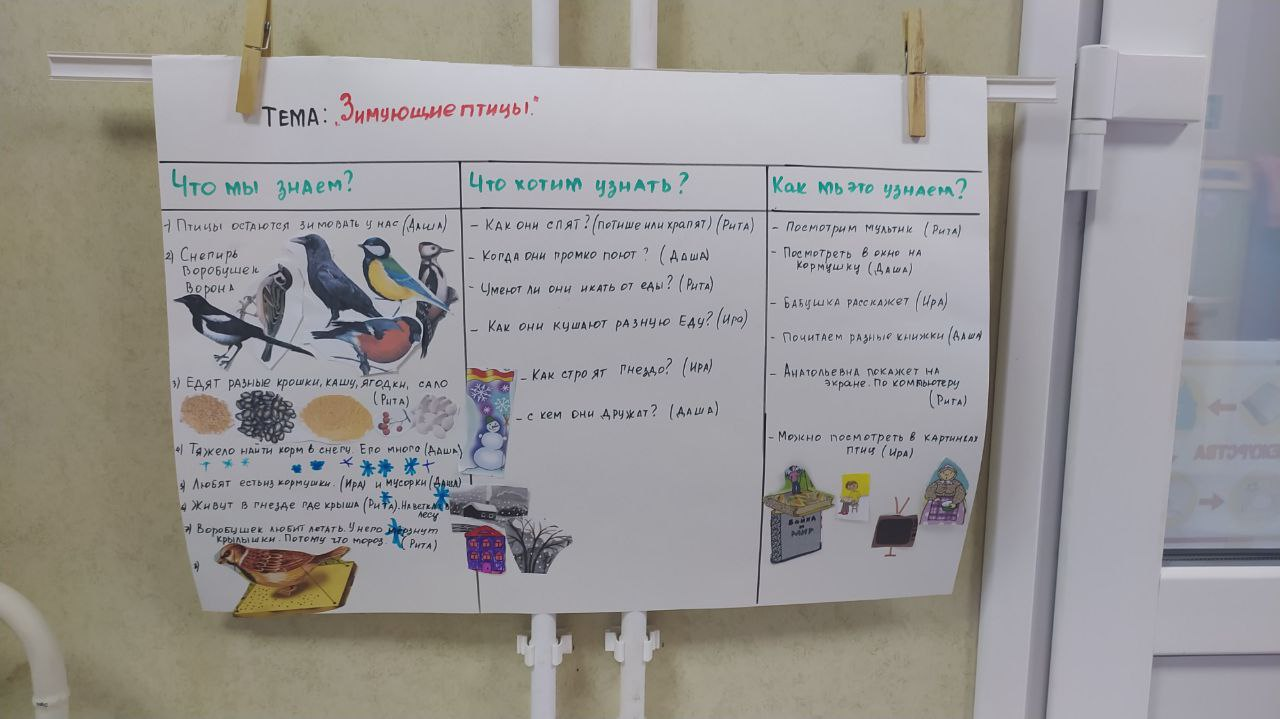 ТЕМА: „Зимующие птицы."
Что мы знаем?
1) Птицы остаются зимовать у нас (Даша)
2) Снегирь
Воробушек
Ворона
3) Едят разные крошки, кашу, ягодки, сало
(Рита)
4) Тяжело найти корм в снегу. Его много (Даша)
5) Любят есть из кормушки. (Ира) и мусорки (Даша)
6) Живут в гнезде где крыша (Рита). На ветках в
лесу
7) Воробушек любит летать. У него мёрзнут
крылышки. Потому что мороз. (Рита)
8)
Что хотим узнать?
- Как они спят? (потише или храпят) (Рита)
- Когда они громко поют? (Даша)
- Умеют ли они икать от еды? (Рита)
- Как они кушают разную еду? (Ира)
- Как строят гнездо? (Ира)
- с кем они дружат? (Даша)
Как мы это узнаем?
- Посмотрим мультик (Рита)
- Посмотреть в окно на
кормушку (Даша)
- Бабушка расскажет (Ира)
- Почитаем разные книжки (Даша)
- Анатольевна покажет на
экране. По компьютеру
(Рита)
- Можно посмотреть в картинках
птиц (Ира)
Война
и
мир